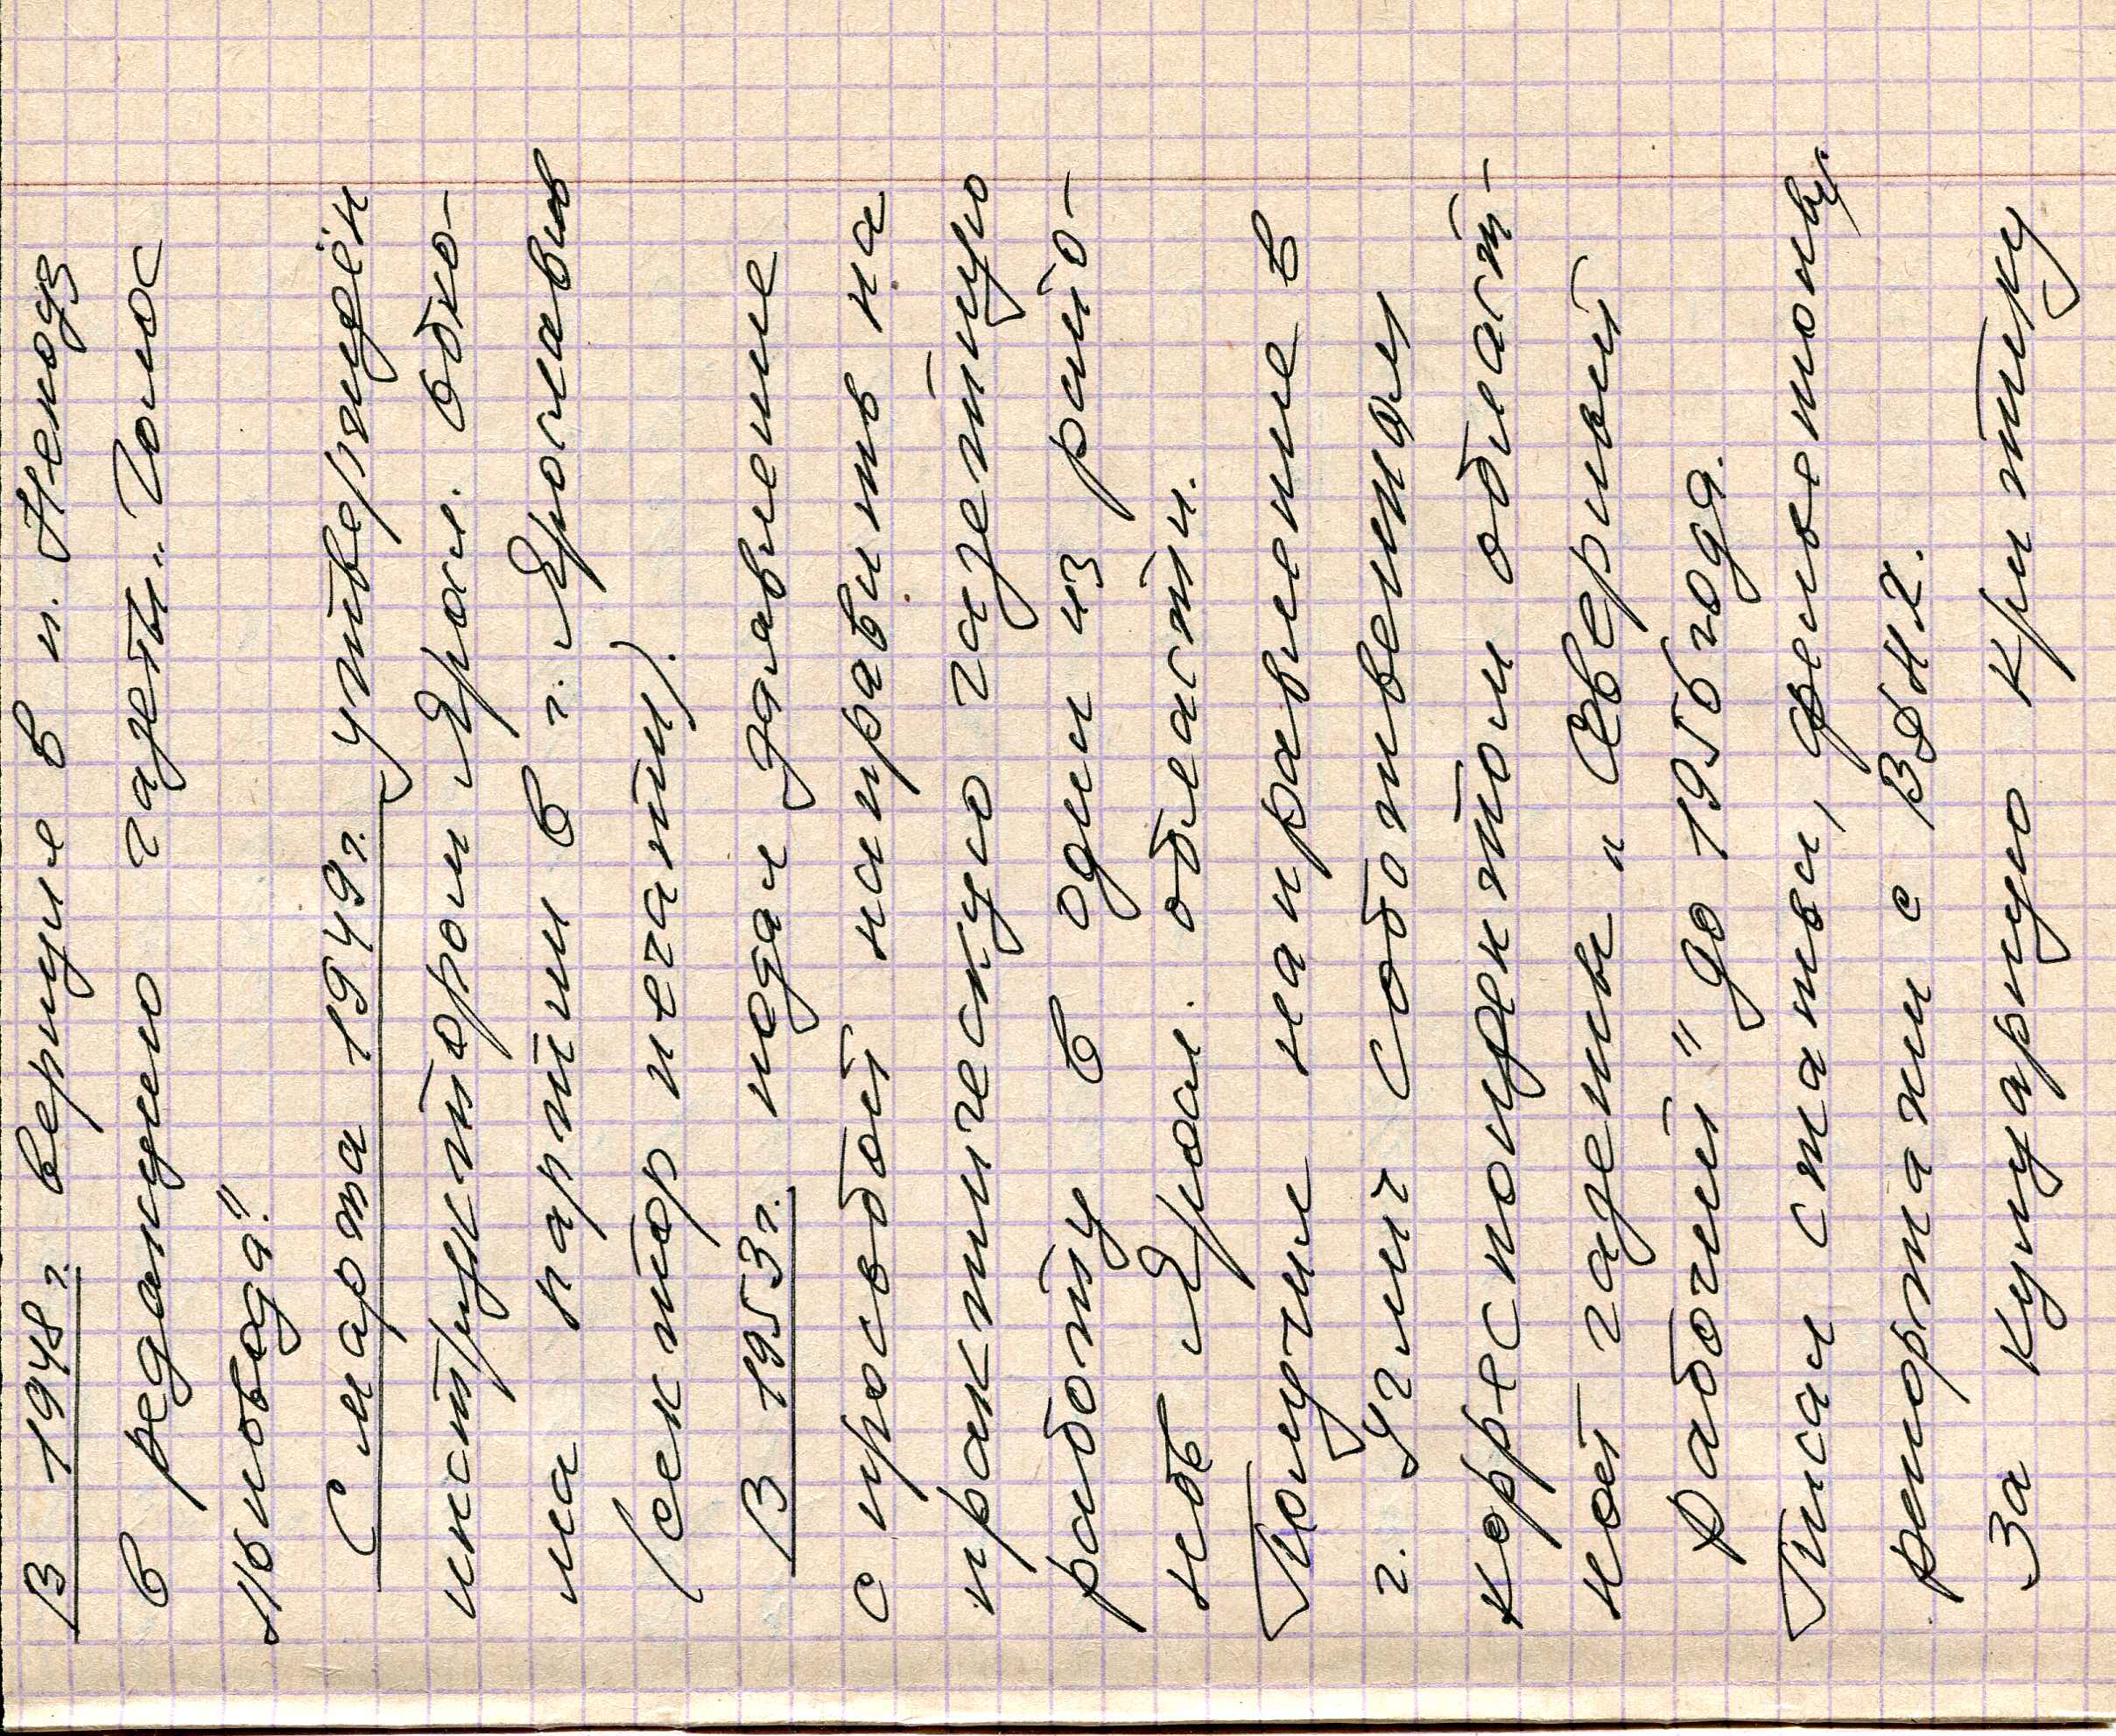 В 1948 г. вернулся в п. Некоуз
в редакцию газеты „Голос
Льновода".
С марта 1949 г. утверждён
инструктором Яросл. обко-
ма партии в г. Ярославль
(сектор печати).
В 1953 г. подал заявление
с просьбой направить на
практическую газетную
работу в один из райо-
нов Яросл. области.
Получил направление в
г. Углич собственным
корреспондентом област-
ной газеты „Северный
рабочий" до 1956 года.
Писал статьи, фельетоны,
репортажи с ВДНХ.
За кулуарную критику